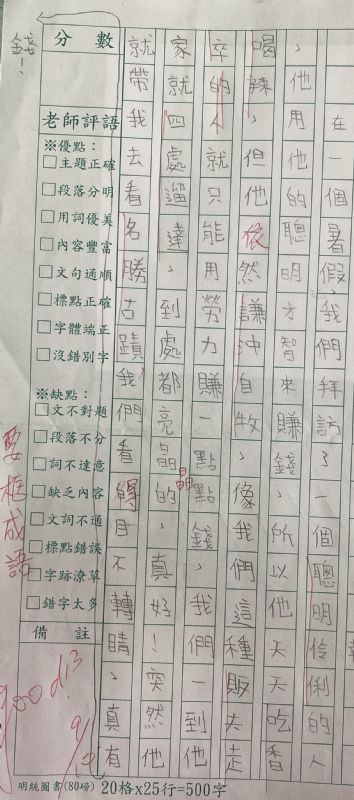 在一個暑假，我們拜訪了一個聰明伶俐的人
，他用他的聰明才智來賺錢，所以他天天吃香
喝辣，但他依然謙沖自牧，像我們這種販夫走
卒的人，就只能用勞力賺一點點錢，我們到他
家就四處遛達，到處都亮晶晶的，真好！突然他
就帶我去看名勝古蹟，我們看得目不轉睛，真有
錢！
分數
老師評語
※優點：
□主題正確
□段落分明
□用詞優美
□內容豐富
□文句通順
□標點正確
□字體端正
□沒錯別字
※缺點：
□文不對題
□段落不分
□詞不達意
□缺乏內容
□文詞不通
□標點錯誤
□字跡潦草
□錯字太多
備註
要框成語
明統圖書(80磅) 20格x25行=500字